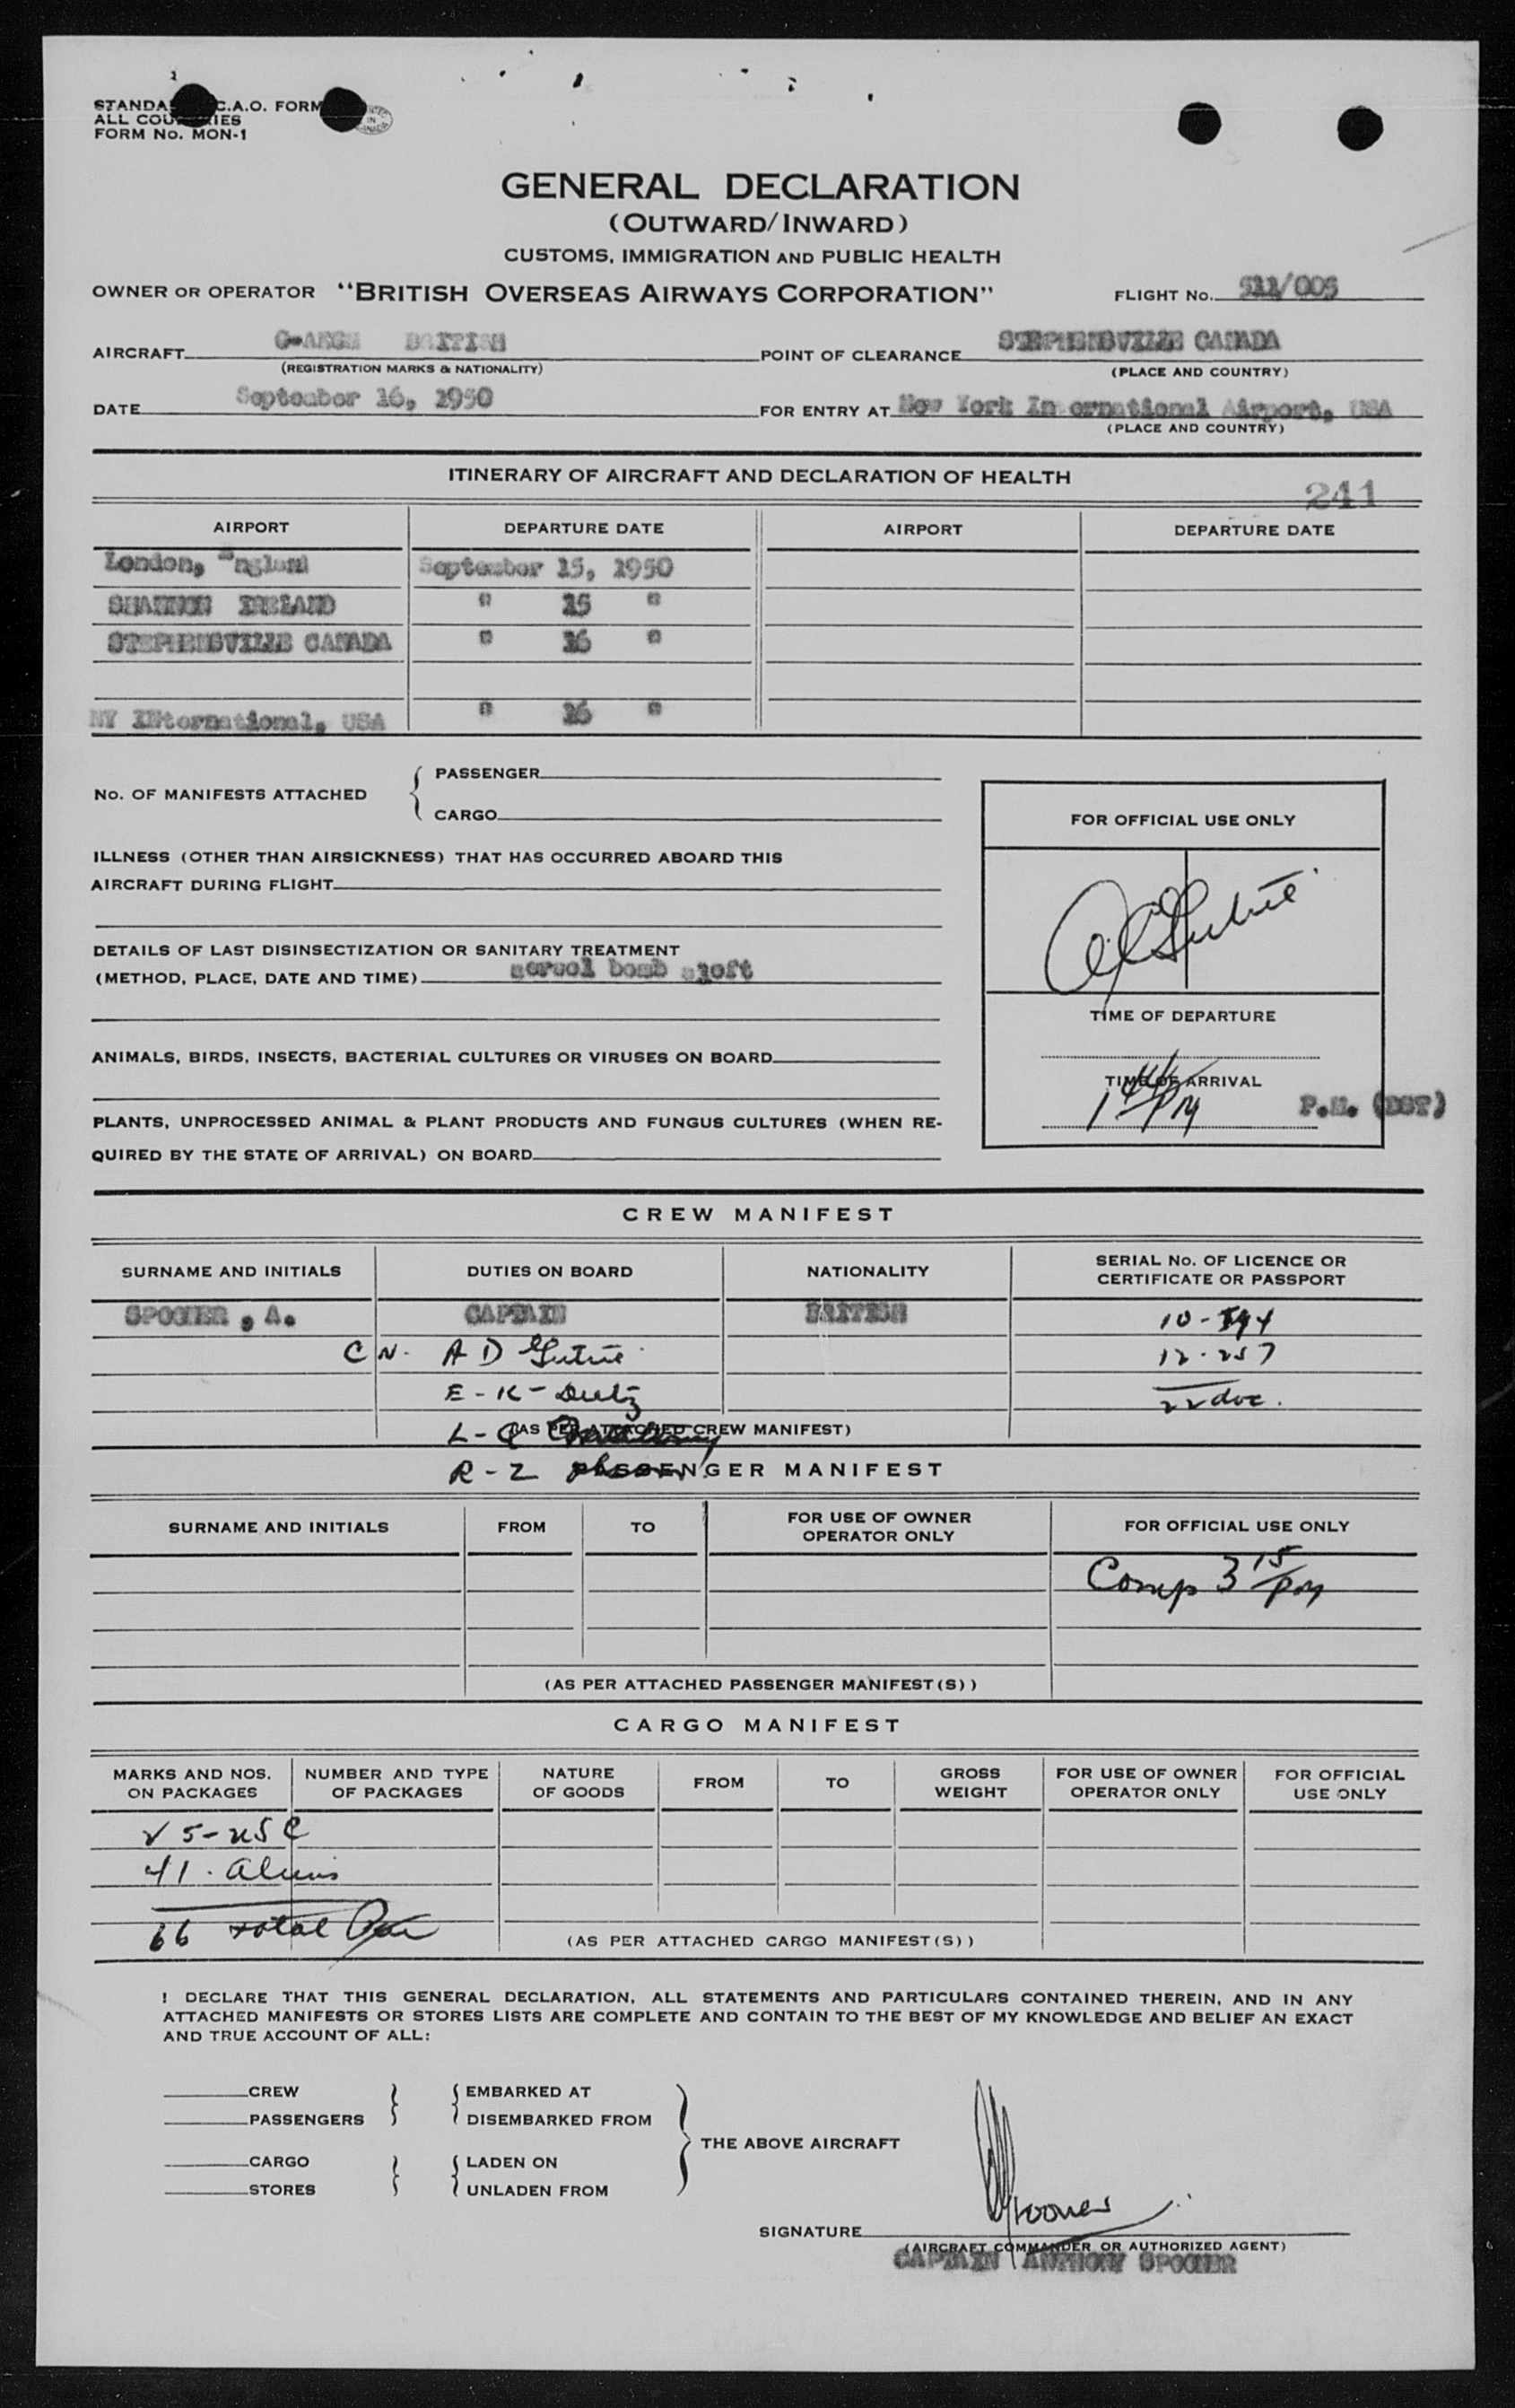 C.A.O. FORM
ALL
FORM No. MON-1
IN
GENERAL DECLARATION
(OUTWARD/INWARD)
CUSTOMS, IMMIGRATION AND PUBLIC HEALTH
OWNER OR OPERATOR "BRITISH OVERSEAS AIRWAYS CORPORATION" FLIGHT No. 511/005
AIRCRAFT BRITISH POINT OF CLEARANCE STEPHENSVILLE CANADA
(REGISTRATION MARKS & NATIONALITY) (PLACE AND COUNTRY)
DATE September 16, 1950 FOR ENTRY AT New York In ernational Airport, USA
(PLACE AND COUNTRY)
ITINERARY OF AIRCRAFT AND DECLARATION OF HEALTH
241
AIRPORT DEPARTURE DATE AIRPORT DEPARTURE DATE
London, England September 15, 1950
SHANNON IRELAND " 15 "
STEPHENSVILLE CANADA " 16 "
NY INternational, USA " 16 "
No. OF MANIFESTS ATTACHED { PASSENGER
CARGO
FOR OFFICIAL USE ONLY
ILLNESS (OTHER THAN AIRSICKNESS) THAT HAS OCCURRED ABOARD THIS
AIRCRAFT DURING FLIGHT
DETAILS OF LAST DISINSECTIZATION OR SANITARY TREATMENT
(METHOD, PLACE, DATE AND TIME) aersol bomb aloft
TIME OF DEPARTURE
ANIMALS, BIRDS, INSECTS, BACTERIAL CULTURES OR VIRUSES ON BOARD
TIME OF ARRIVAL
PM P.M. (DST)
PLANTS, UNPROCESSED ANIMAL & PLANT PRODUCTS AND FUNGUS CULTURES (WHEN RE-
QUIRED BY THE STATE OF ARRIVAL) ON BOARD
CREW MANIFEST
SURNAME AND INITIALS DUTIES ON BOARD NATIONALITY SERIAL No. OF LICENCE OR
CERTIFICATE OR PASSPORT
SPOONER , A. CAPTAIN BRITISH
C N. A D
12-257
E - K -
22 doc.
L - C (AS PER ATTACHED CREW MANIFEST)
R - Z
PASSENGER MANIFEST
SURNAME AND INITIALS FROM TO FOR USE OF OWNER
OPERATOR ONLY FOR OFFICIAL USE ONLY
Comp 3 15 PM
(AS PER ATTACHED PASSENGER MANIFEST(S))
CARGO MANIFEST
MARKS AND NOS.
ON PACKAGES NUMBER AND TYPE
OF PACKAGES NATURE
OF GOODS FROM TO GROSS
WEIGHT FOR USE OF OWNER
OPERATOR ONLY FOR OFFICIAL
USE ONLY
25 - USC
41 . aliens
66 total
(AS PER ATTACHED CARGO MANIFEST(S))
I DECLARE THAT THIS GENERAL DECLARATION, ALL STATEMENTS AND PARTICULARS CONTAINED THEREIN, AND IN ANY
ATTACHED MANIFESTS OR STORES LISTS ARE COMPLETE AND CONTAIN TO THE BEST OF MY KNOWLEDGE AND BELIEF AN EXACT
AND TRUE ACCOUNT OF ALL:
CREW EMBARKED AT
PASSENGERS DISEMBARKED FROM
THE ABOVE AIRCRAFT
CARGO LADEN ON
STORES UNLADEN FROM
SIGNATURE Spooner
(AIRCRAFT COMMANDER OR AUTHORIZED AGENT)
CAPTAIN ANTHONY SPOONER